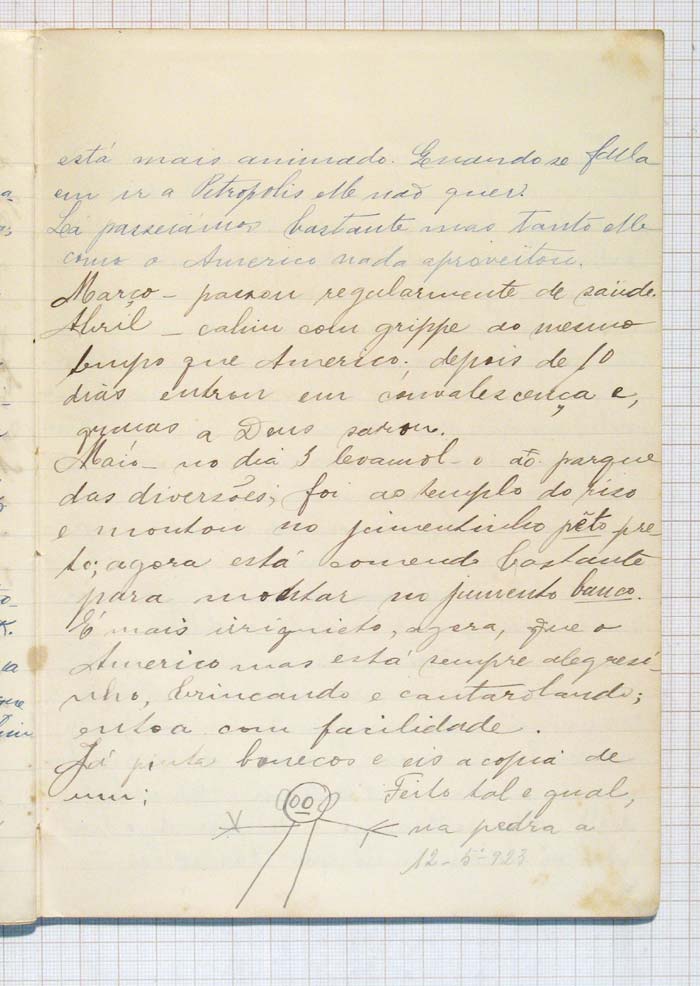 está mais animado. Quando se falla
em ir a Petropolis elle não quer.
Lá passeiámos bastante mas tanto elle
como o Americo nada aproveitou.
Março – passou regularmente de saúde.
Abril – cahiu com grippe ao mesmo
tempo que Americo; depois de 10
dias entrou em convalescença e,
graças a Deus sarou.
Maio – no dia 3 levamol-o ao parque
das diversões; foi ao templo do riso
e montou no jumentinho pêto pre-
to; agora está comendo bastante
para montar no jumento banco.
É mais irriquieto, agora, que o
Americo mas está sempre alegresi-
nho, brincando e cantarolando;
entoa com facilidade.
Já pinta bonecos e eis a copia de
um; Feito tal e qual,
na pedra a
12-5-923